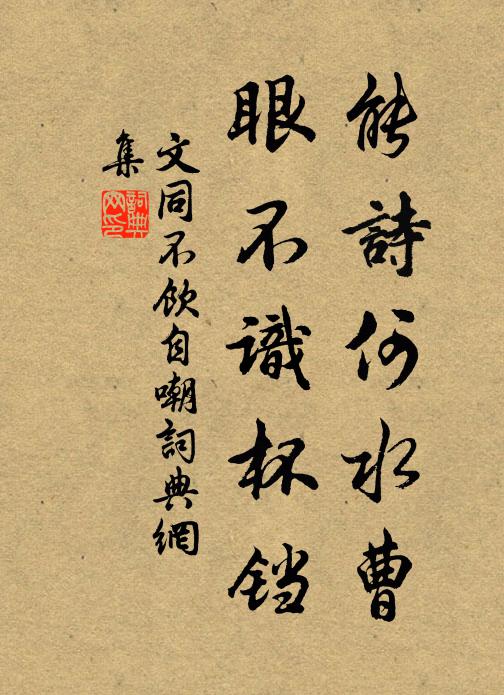 能詩何水曹
眼不識杯铛
文同不飲自嘲詞典網
集
詞典
网印